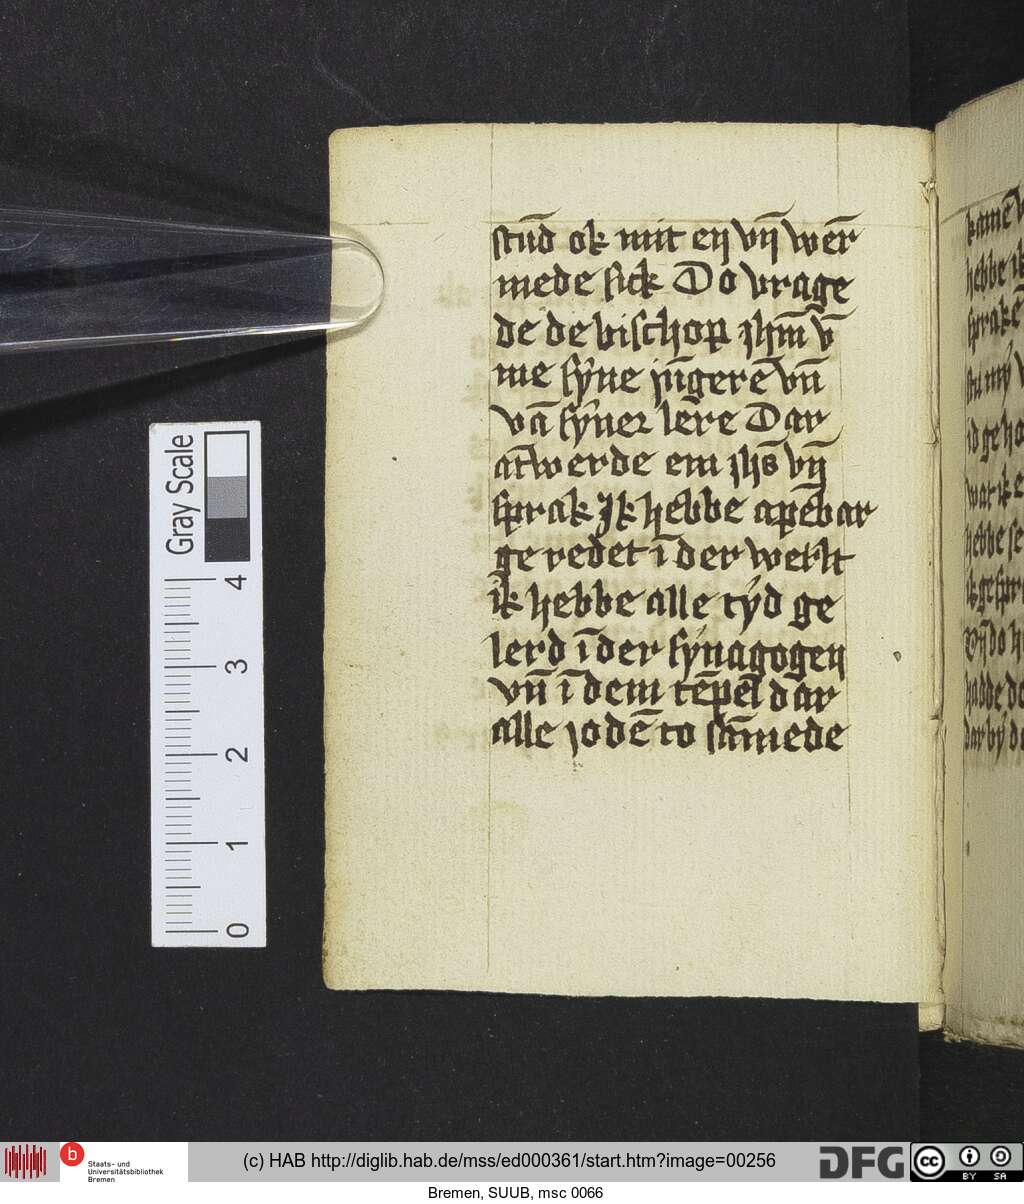 stūd ok mit eꝫ vn̄ wer̄
mede sick Do vrage
de de bisschop ih̄m v̄
me sẏne iūgerē vn̄
vā sẏner lere Dar
at̄werde em ih̄s vn̄
sprak Ik hebbe apēbar
ge redet ī der werlt
ik hebbe alle tẏd ge
lerd ī der sẏnagogen
vn̄ ī dem tēpel dar
alle iodē to sām̄ede
kamē
hebbe ik
sprakē
mẏ
id ge
war ik
hebbe
ik gespr
Vn̄ do
hadde de
dar bẏ
Gray Scale
4
3
2
1
0
b
Staats- und
Universitätsbibliothek
Bremen
(c) HAB http://diglib.hab.de/mss/ed000361/start.htm?image=00256
DFG
cc
BY SA
Bremen, SUUB, msc 0066